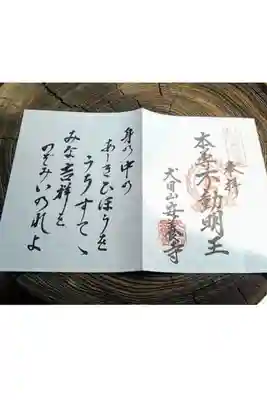 奉拝
本尊不動明王
犬目山安養寺
身乃中の
あしきひほうを
うちすてゝ
みな吉祥を
のぞみいのれよ